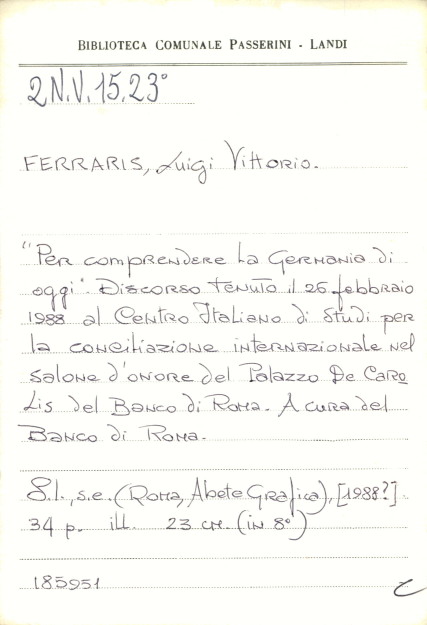 BIBLIOTECA COMUNALE PASSERINI - LANDI
2N.V.15.23°
FERRARIS, Luigi Vittorio.
"Per comprendere la Germania di
oggi". Discorso tenuto il 26 febbraio
1988 al Centro Italiano di Studi per
la conciliazione internazionale nel
salone d'onore del Palazzo De Caro
Lis del Banco di Roma. A cura del
Banco di Roma.
S.l., s.e. (Roma, Abete Grafica), [1988?].
34 p. ill. 23 cm. (in 8°)
185951